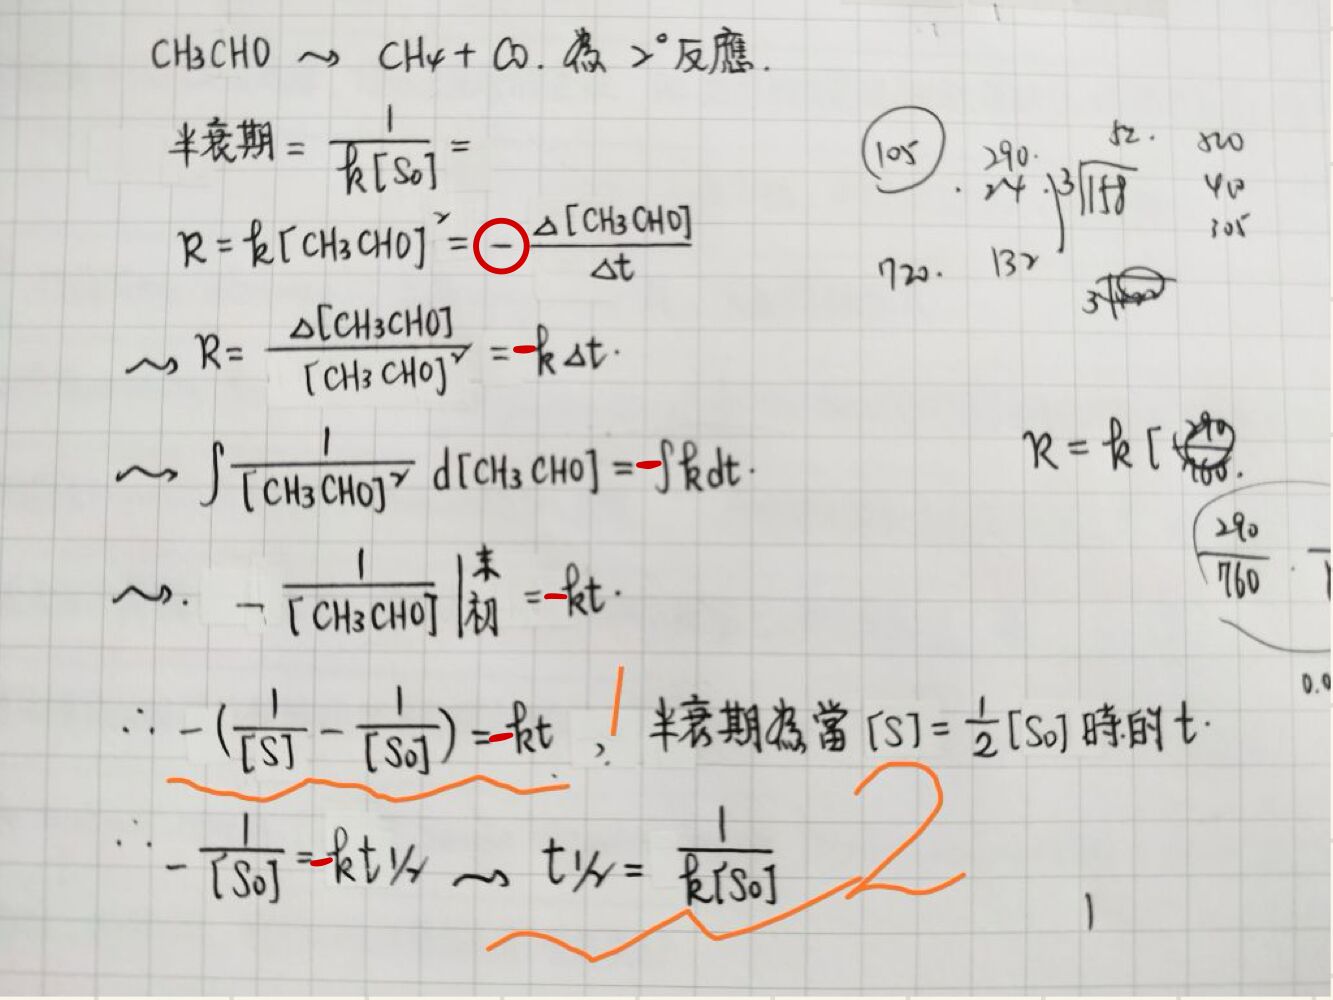 CH3CHO ⇝ CH4 + CO. 為 2° 反應.
半衰期 = 1 / k[S0] =
R = k[CH3CHO]² = - Δ[CH3CHO] / Δt
⇝ R = Δ[CH3CHO] / [CH3CHO]² = -kΔt.
⇝ ∫ 1 / [CH3CHO]² d[CH3CHO] = -∫kdt.
⇝. - 1 / [CH3CHO] |末 初 = -kt.
∴ -(1/[S] - 1/[S0]) = -kt , 1 半衰期為當 [S] = 1/2 [S0] 時的 t.
∴ - 1/[S0] = -k t1/2 ⇝ t1/2 = 1 / k[S0] 2
105
290.
24.
720.
132
52.
3 158
520
40
305
R = k [
290 / 760
1